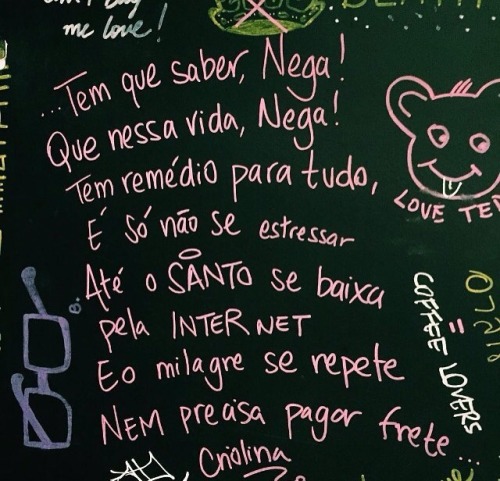 me love!
...Tem que saber, Nega!
Que nessa vida, Nega!
Tem remédio para tudo,
É só não se estressar
Até o SANTO se baixa
pela INTERNET
E o milagre se repete
NEM precisa pagar frete...
Criolina
LOVE
COFFEE LOVERS